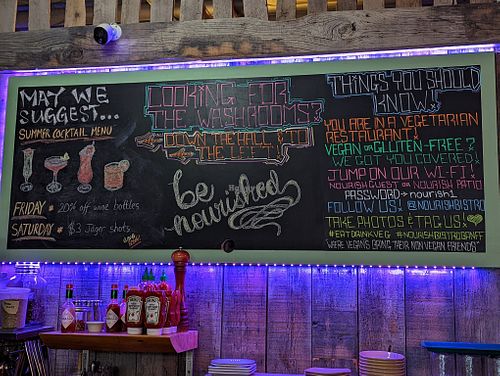 MAY WE
SUGGEST...
SUMMER COCKTAIL MENU
FRIDAY * 20% off wine bottles
SATURDAY * $3 Jäger shots
LOOKING FOR
THE WASHROOMS?
DOWN THE HALL & TO
THE LEFT!
be
nourished
THINGS YOU SHOULD
KNOW!
YOU ARE IN A VEGETARIAN
RESTAURANT!
VEGAN OR GLUTEN-FREE?
WE GOT YOU COVERED!
JUMP ON OUR WI-FI!
NOURISH GUEST OR NOURISH PATIO
PASSWORD → nourish1
FOLLOW US! @NOURISHBISTRO
TAKE PHOTOS & TAG US!
#EATDRINKVEG #NOURISHBISTROBANFF
"WHERE VEGANS BRING THEIR NON VEGAN FRIENDS"